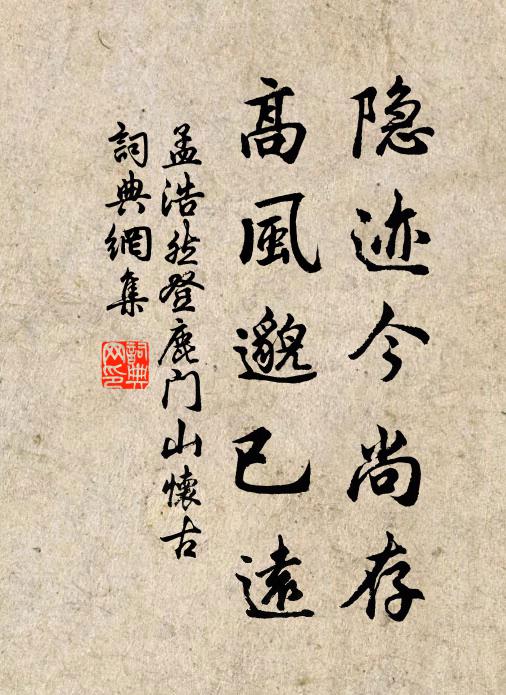 隐迹今尚存
高風邈已遠
孟浩然登鹿门山懷古
詞典網集
詞典网印